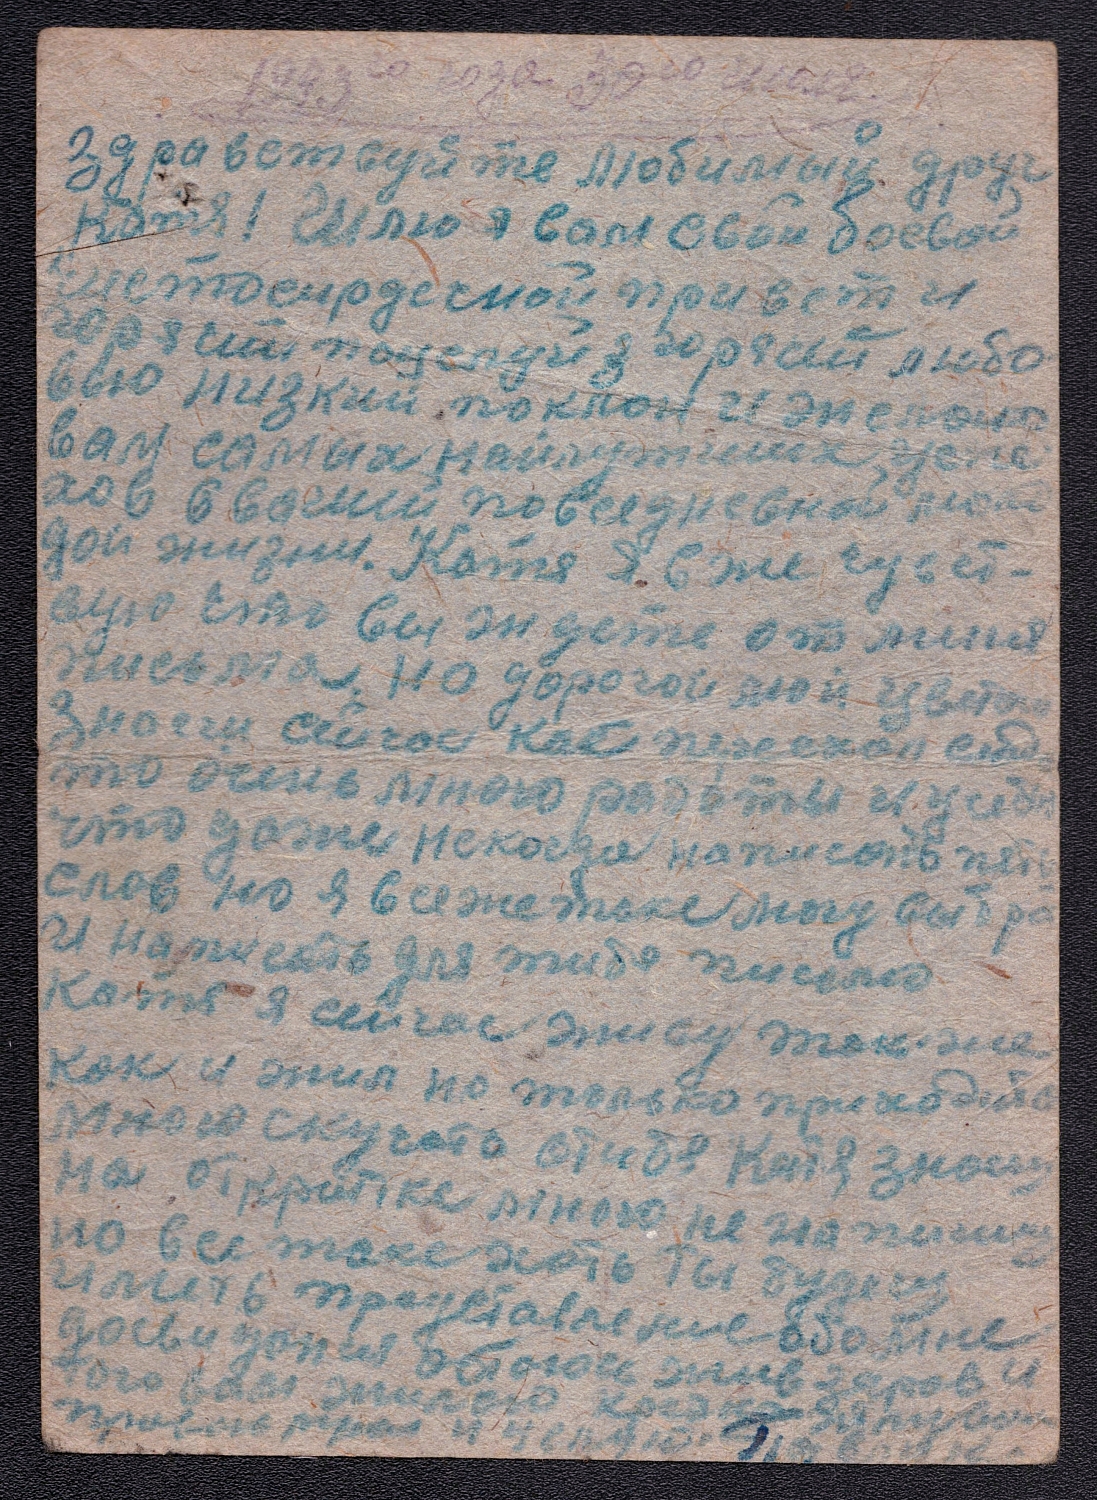 1943 го года 30 го июля.
Здравствуйте любимый друг
Катя! Шлю я вам свой боевой
чистосирдечной привет и
горячий поцелуй з горячай любо
вью низкий поклон и желаю
вам самых найлутших успе
хов в вашей повседневной
дой жизни. Катя я вже чувст-
вую что вы ждете от миня
письма, но дорогой мой цвето
Знаеш сейчас как
то очень много работы и учебы
что даже некогда написать пять
слов но я всежетаке могу выбра
и написать для тибя письмо
Катя я сейчас живу так-же
как и жил но только приходитс
много скучать отибя Катя знаеш
на открытке много не напишиш
но все таке хоть ты будеш
иметь представление обомне
досвидания остаюсь жив здаров и
того вам жилаю крепко
Павлик.